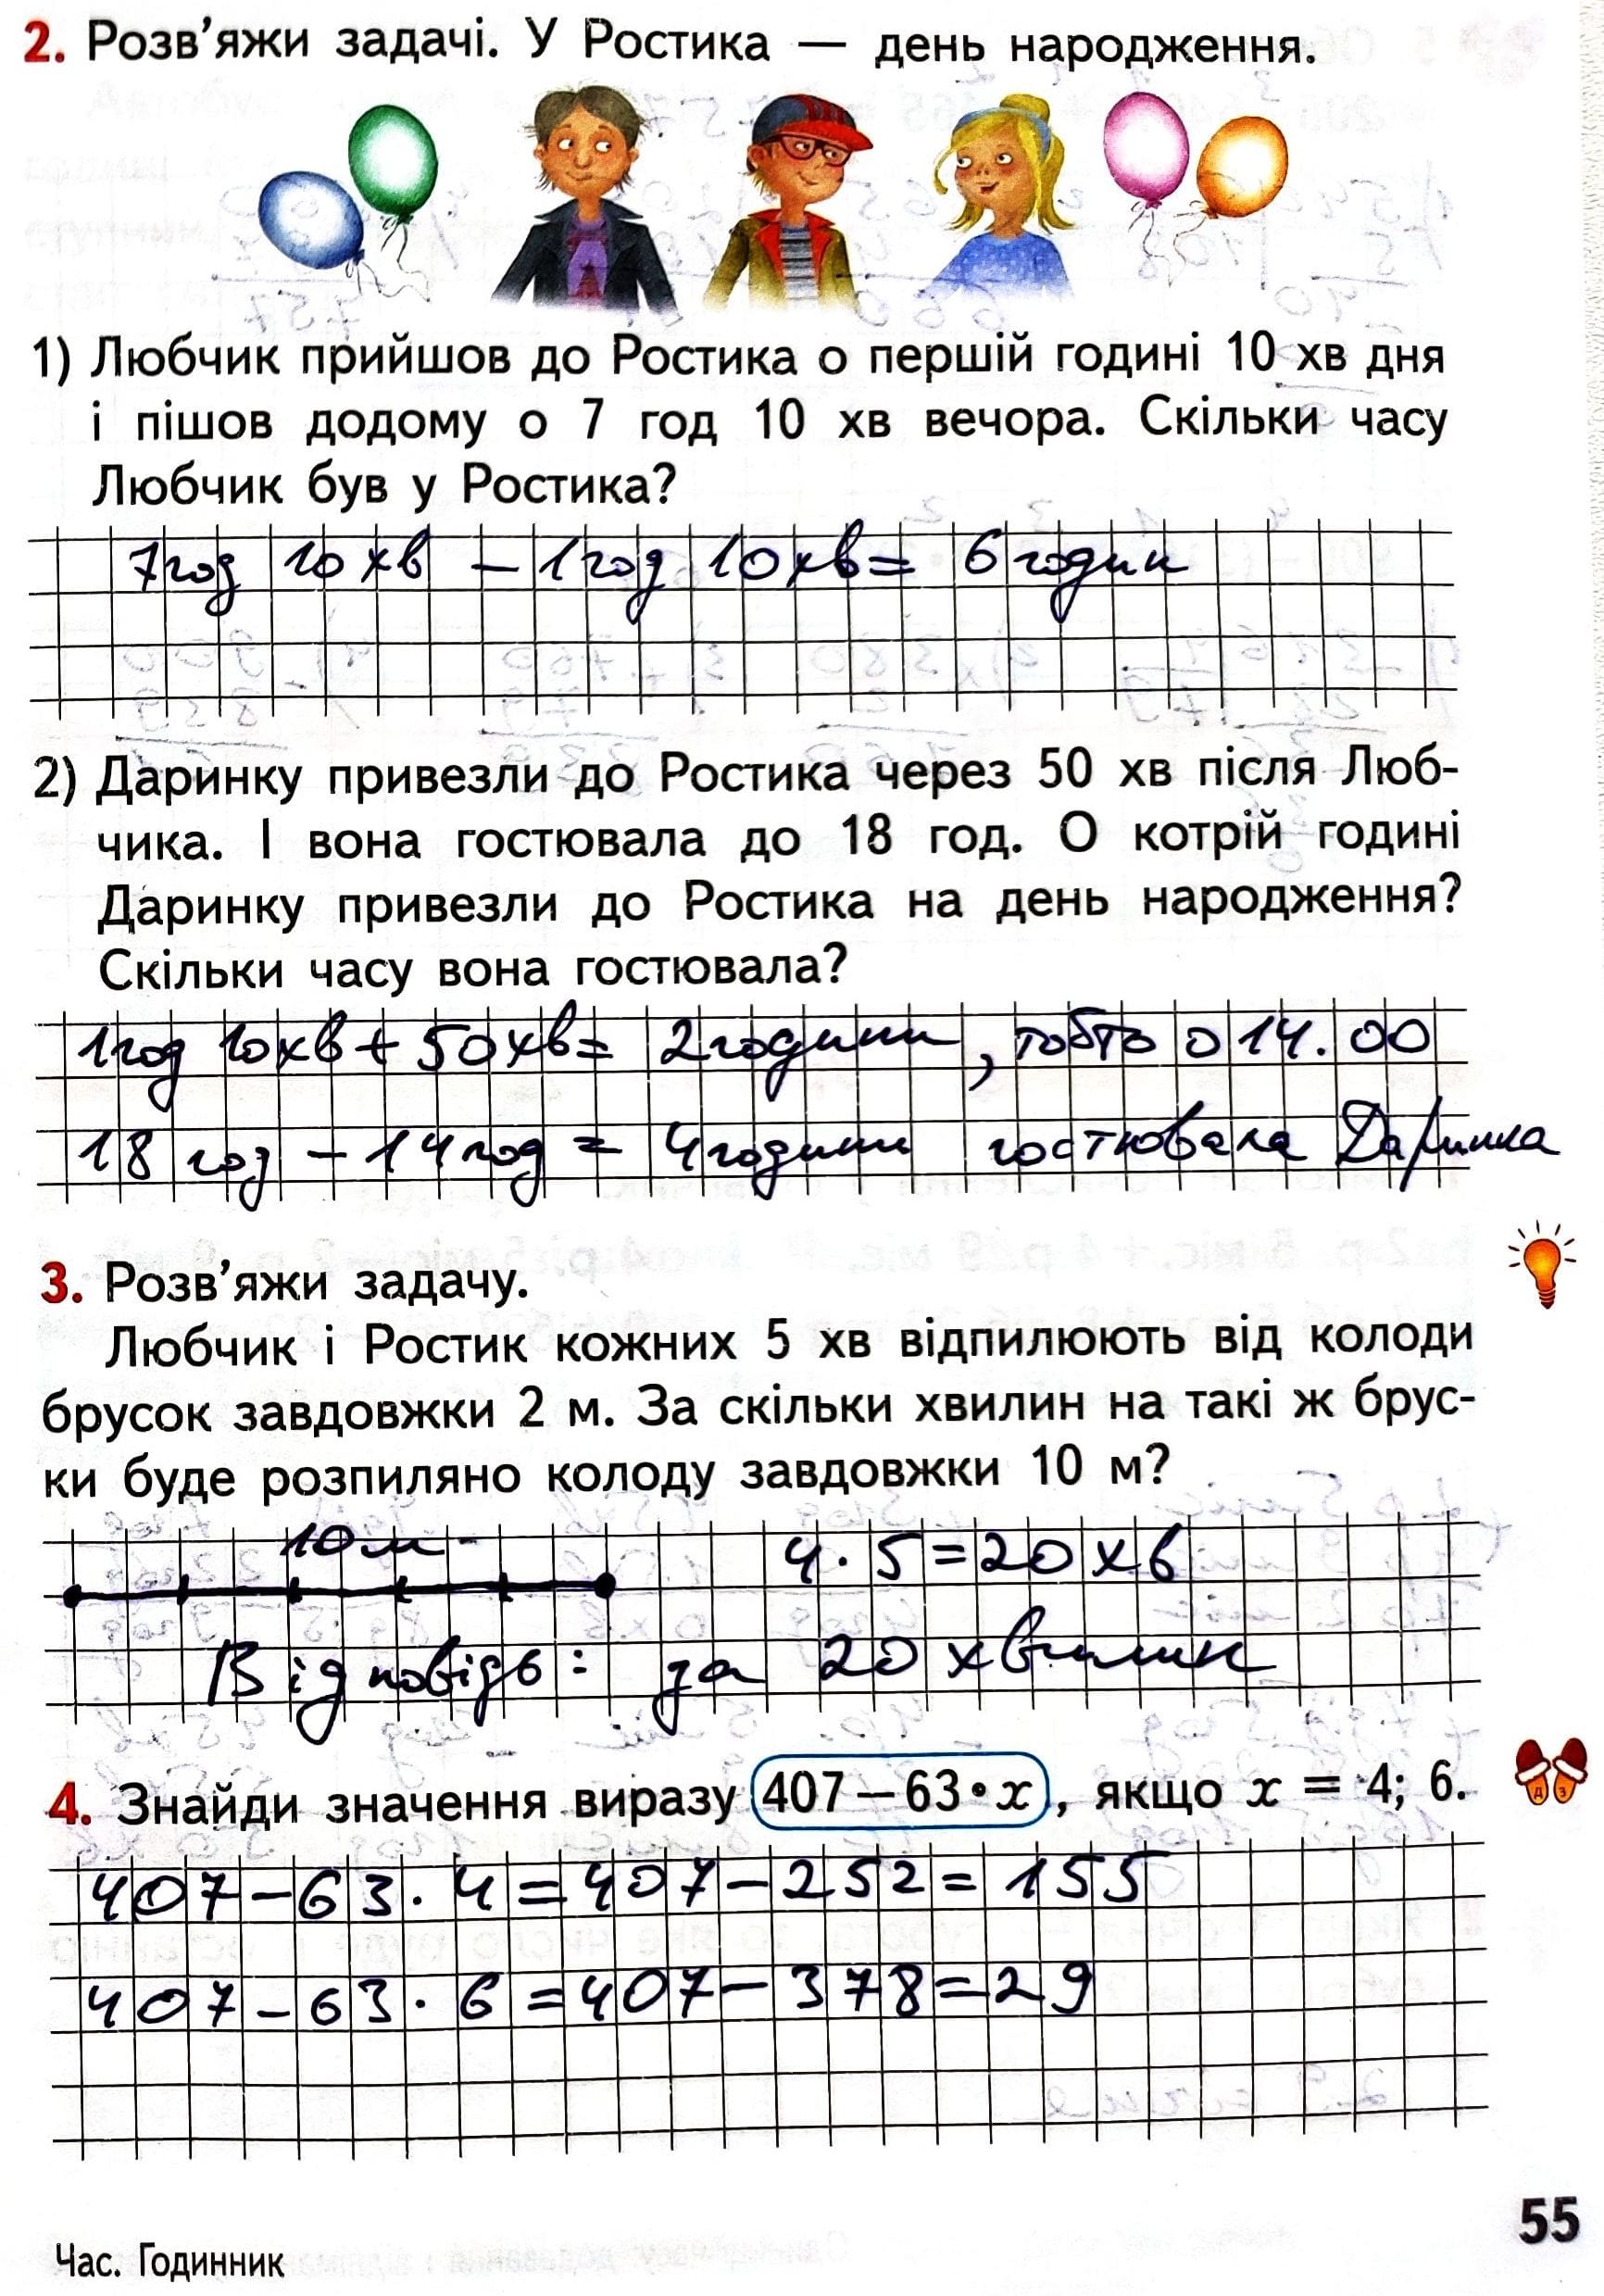 2. Розв’яжи задачі. У Ростика — день народження.
1) Любчик прийшов до Ростика о першій годині 10 хв дня
і пішов додому о 7 год 10 хв вечора. Скільки часу
Любчик був у Ростика?
7год 10хв – 1год 10хв = 6 годин
2) Даринку привезли до Ростика через 50 хв після Люб-
чика. І вона гостювала до 18 год. О котрій годині
Даринку привезли до Ростика на день народження?
Скільки часу вона гостювала?
1год 10хв + 50хв = 2години, тобто о 14.00
18 год – 14год = 4години гостювала Даринка
3. Розв’яжи задачу.
Любчик і Ростик кожних 5 хв відпилюють від колоди
брусок завдовжки 2 м. За скільки хвилин на такі ж брус-
ки буде розпиляно колоду завдовжки 10 м?
10м 4 · 5 = 20 хв
Відповідь: за 20 хвилин
4. Знайди значення виразу 407 – 63 • x, якщо x = 4; 6.
д з
407 – 63 · 4 = 407 – 252 = 155
407 – 63 · 6 = 407 – 378 = 29
55
Час. Годинник